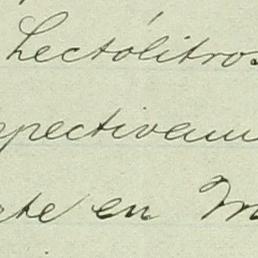 Hectólitros
spectivam
te en